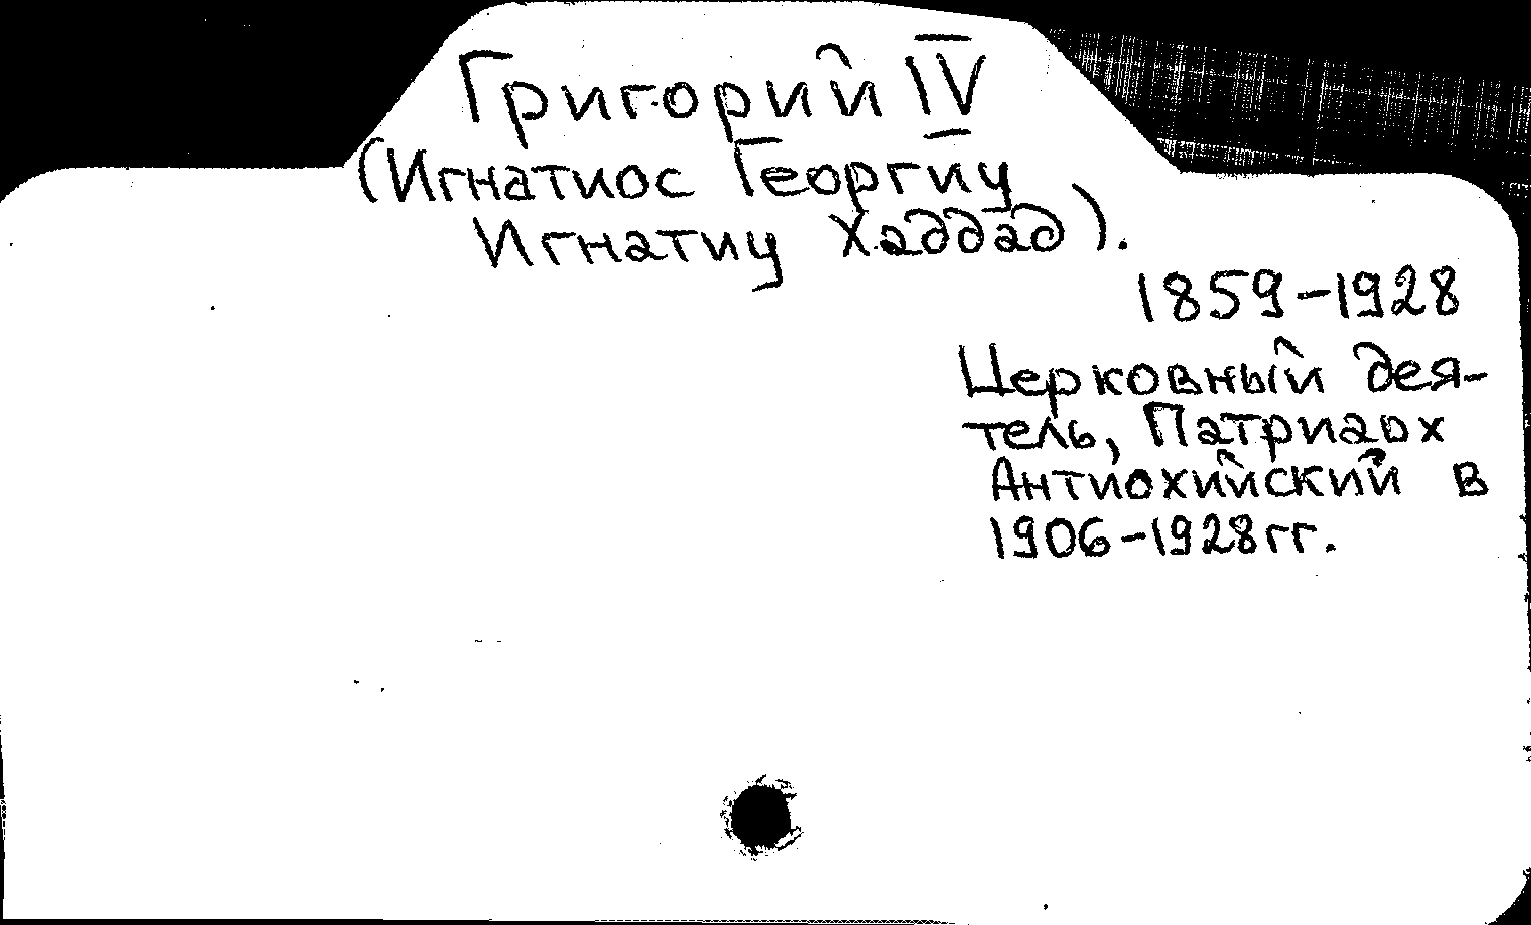 Григорий IV
(Игнатиос Георгиу
Игнатиу Хаддад).
1859-1928
Церковный дея-
тель, Патриарх
Антиохийский в
1906-1928гг.